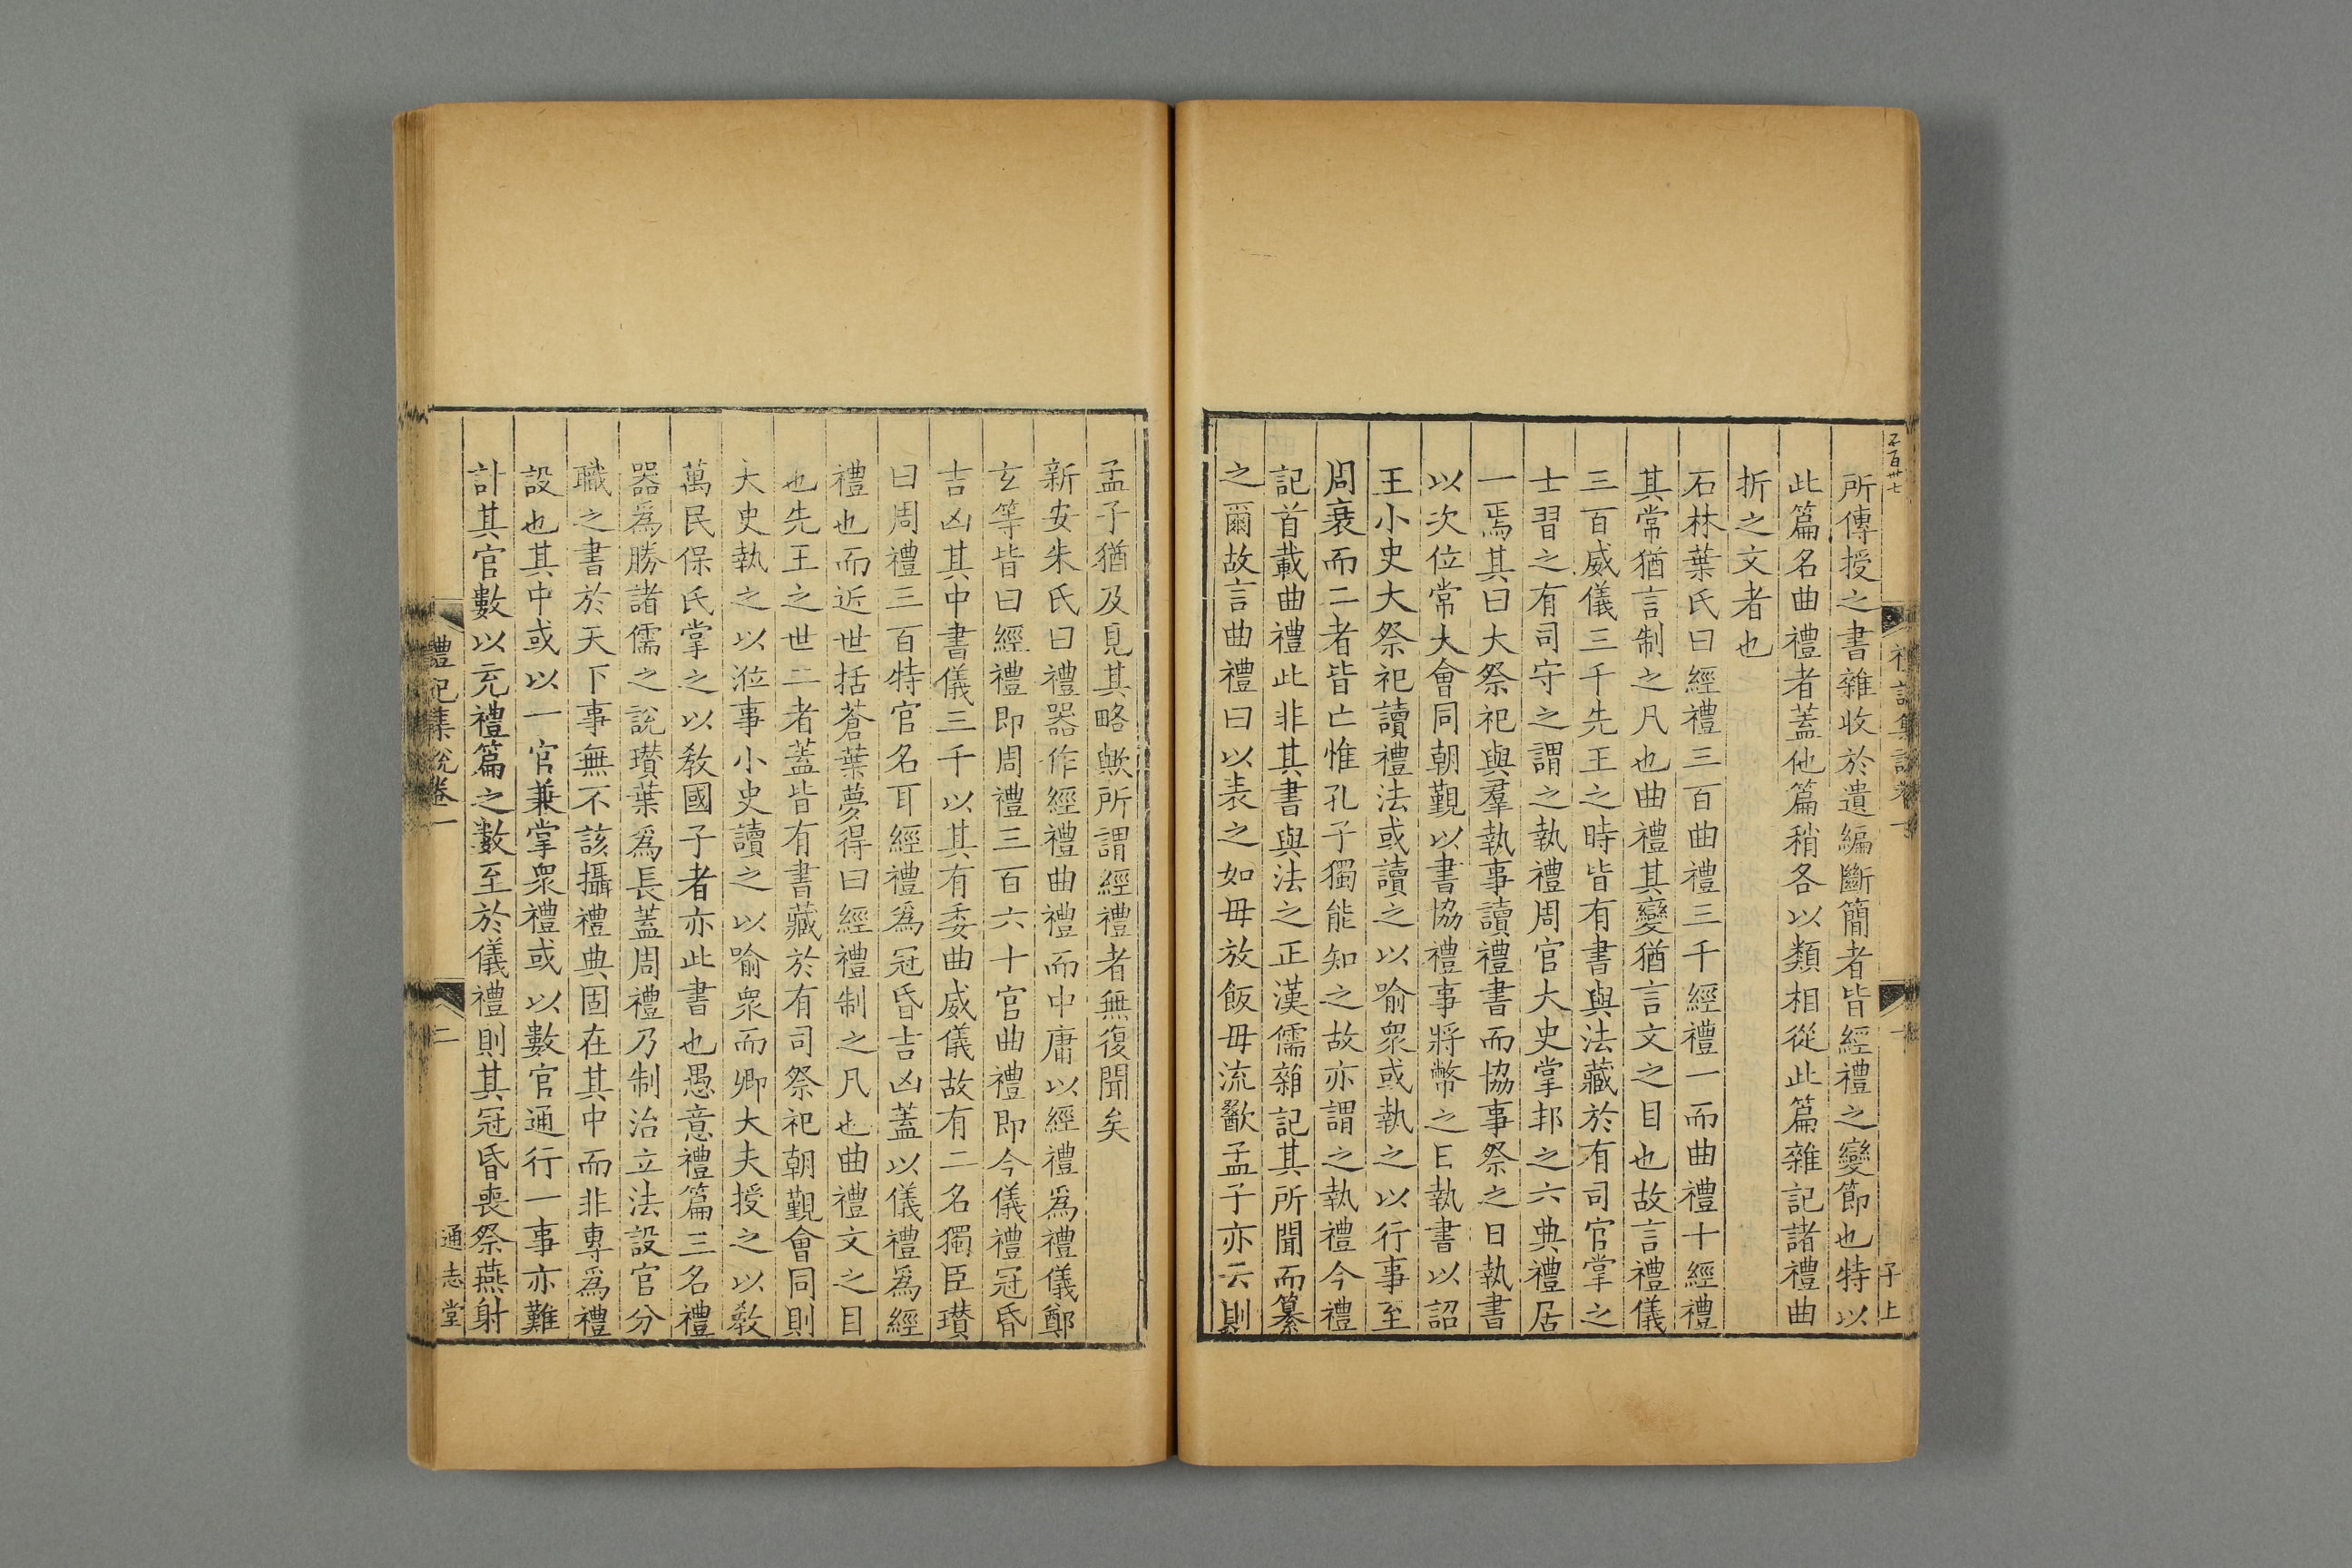 所傳授之書雜收於遺編斷簡者皆經禮之變節也特以
此篇名曲禮者蓋他篇稍各以類相從此篇雜記諸禮曲
折之文者也
石林葉氏曰經禮三百曲禮三千經禮一而曲禮十經禮
其常猶言制之凡也曲禮其變猶言文之目也故言禮儀
三百威儀三千先王之時皆有書與法藏於有司官掌之
士習之有司守之謂之執禮周官大史掌邦之六典禮居
一焉其曰大祭祀與羣執事讀禮書而協事祭之日執書
以次位常大會同朝覲以書協禮事將幣之日執書以詔
王小史大祭祀讀禮法或讀之以喻眾或執之以行事至
周衰而二者皆亡惟孔子獨能知之故亦謂之執禮今禮
記首載曲禮此非其書與法之正漢儒雜記其所聞而纂
之爾故言曲禮曰以表之如毋放飯毋流歠孟子亦云則
孟子猶及見其略歟所謂經禮者無復聞矣
新安朱氏曰禮器作經禮曲禮而中庸以經禮爲禮儀鄭
玄等皆曰經禮即周禮三百六十官曲禮即今儀禮冠昏
吉凶其中書儀三千以其有委曲威儀故有二名獨臣瓚
曰周禮三百特官名耳經禮爲冠昏吉凶蓋以儀禮爲經
禮也而近世括蒼葉夢得曰經禮制之凡也曲禮文之目
也先王之世二者蓋皆有書藏於有司祭祀朝覲會同則
大史執之以涖事小史讀之以喻眾而卿大夫授之以教
萬民保氏掌之以教國子者亦此書也愚意禮篇三名禮
器爲勝諸儒之說瓚葉爲長蓋周禮乃制治立法設官分
職之書於天下事無不該攝禮典固在其中而非專爲禮
設也其中或以一官兼掌眾禮或以數官通行一事亦難
計其官數以充禮篇之數至於儀禮則其冠昏喪祭燕射
禮記集說卷一
二
通志堂